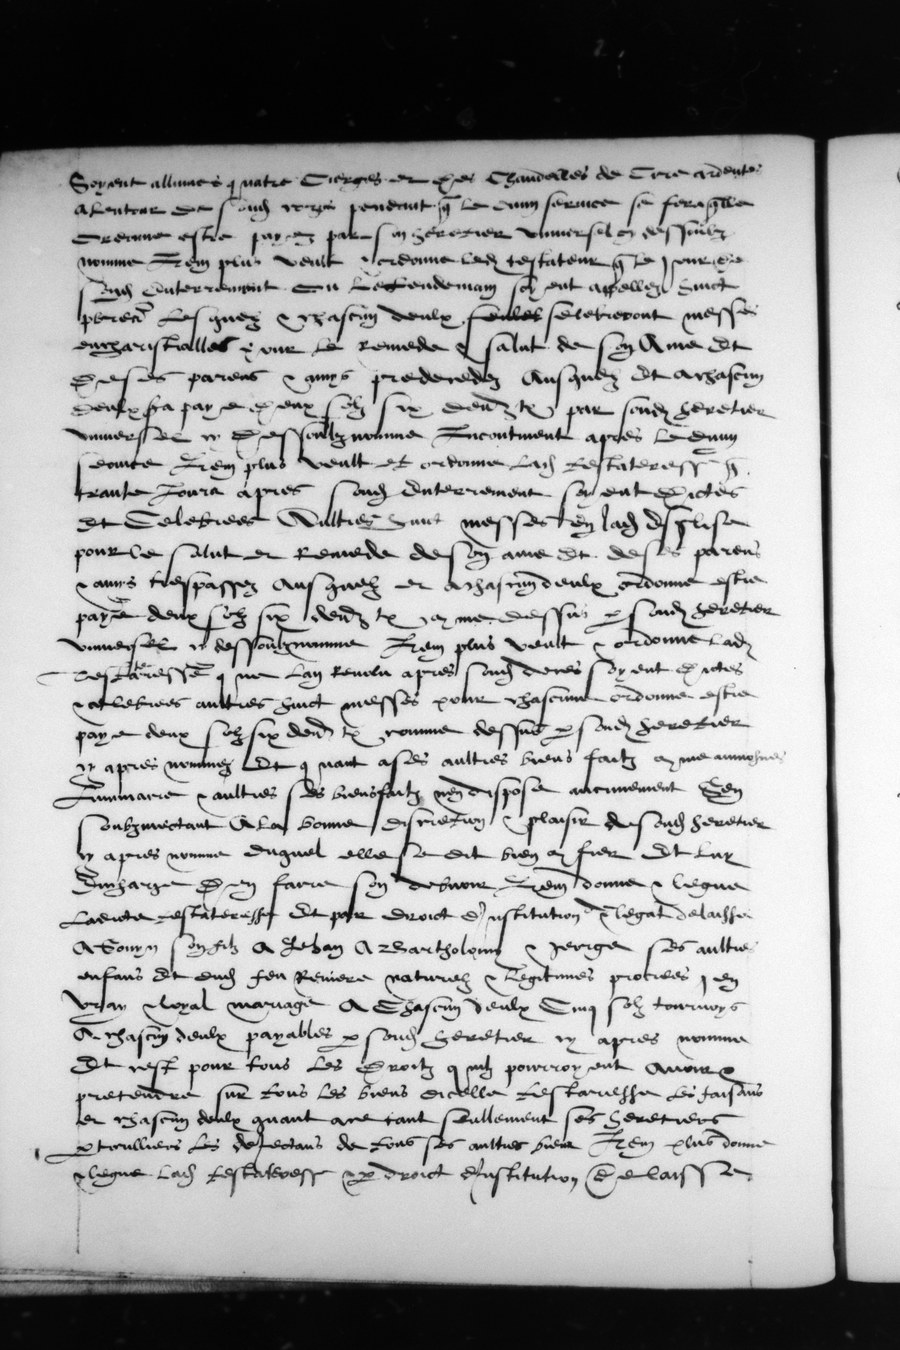 Soyent allumes quatre Cierges et des Chandelles de Cere ardentes
alentour de soud corps pendant q le divin service se fera q elle
ordonne estre payes par son heretier universel cy dessoubz
nomme Item plus veult & ordonne led testateur q le jour de
soud Enterrement ou lendemain soyent appelles huict
prebtres lesquelz & chascun deulx celebreront messes
eucharistialles pour le remede & salut de son Ame Et
De ses parens & amys predecedez Ausquelz Et a chascun
deulx sera paye deux solz six den tz par soud heretier
universel cy dessoubz nomme Incontinent apres le divin
service Item plus veult et ordonne lad testateresse q
trante Jours apres soud Enterrement soyent dictes
Et Celebrees Aultres huict messes en lad Esglise
pour le salut et Remede de son ame Et de ses parens
& amys trespasses Ausquelz et a chascun deulx ordonne estre
paye deux solz six den tz comme dessus p soud heretier
universel cy dessoubz nomme Item plus veult & ordonne lad
testateresse que lan Revolu apres soud deces soyent dictes
& celebrees aultres huict messes pour chascune ordonne estre
paye deux solz six den tz comme dessus p soud heretier
cy apres nomme Et quant a ses aultres biens faitz comme aumosnes
luminaire & aultres ses biensfaitz nen dispose aucunement Sen
soubzmectant A la bonne discretion & plaisir de soud heretier
cy apres nomme duquel elle se dit bien confier Et luy
Encharge den faire son debvoir Item donne & legue
Ladicte testateresse Et par droict dinstitution & legat delaisse
A son filz A Jehan A Bartholomy & ses aultres
enfans Et dud feu Reniere naturelz & legitimes procrees en
vray & loyal mariage A Chascun deulx Cinq solz tournoys
A chascun deulx payables p soud heretier cy apres nomme
Et cest pour tous les Droitz quilz pourroyent Avoir &
pretendre sur tous les biens dicelle testaresse les faisans
et chascun deulx quant a ce tant seullement ses heretiers
particulliers les de tous ses aultres biens Item plus donne
& legue lad testateresse & p droict dinstitution delaisse